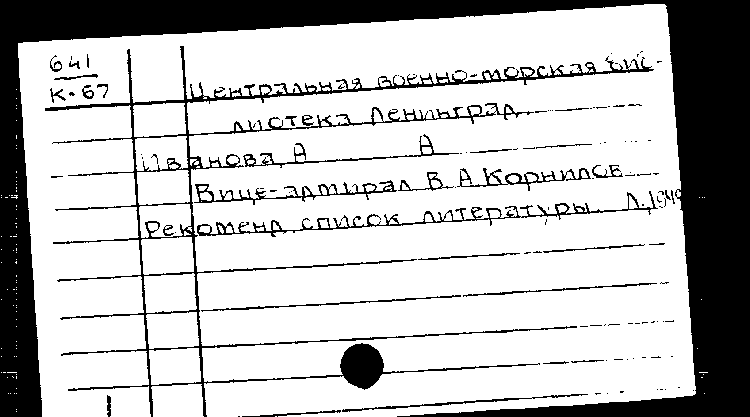 641
К-67
Центральная военно-морская биб-
лиотека Ленинград.
Иванова, А А
Вице-адмирал В. А. Корнилов
Рекоменд. список литературы. Л., 1949